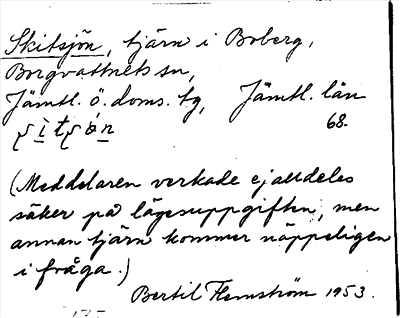 Skitsjön, tjärn i Boberg,
Borgvattnets sn,
Jämtl. ö. doms. tg, Jämtl. län
68.
(Meddelaren verkade ej alldeles
säker på lägesuppgiften, men
annan tjärn kommer näppeligen
i fråga.)
Bertil Flemström 1953.